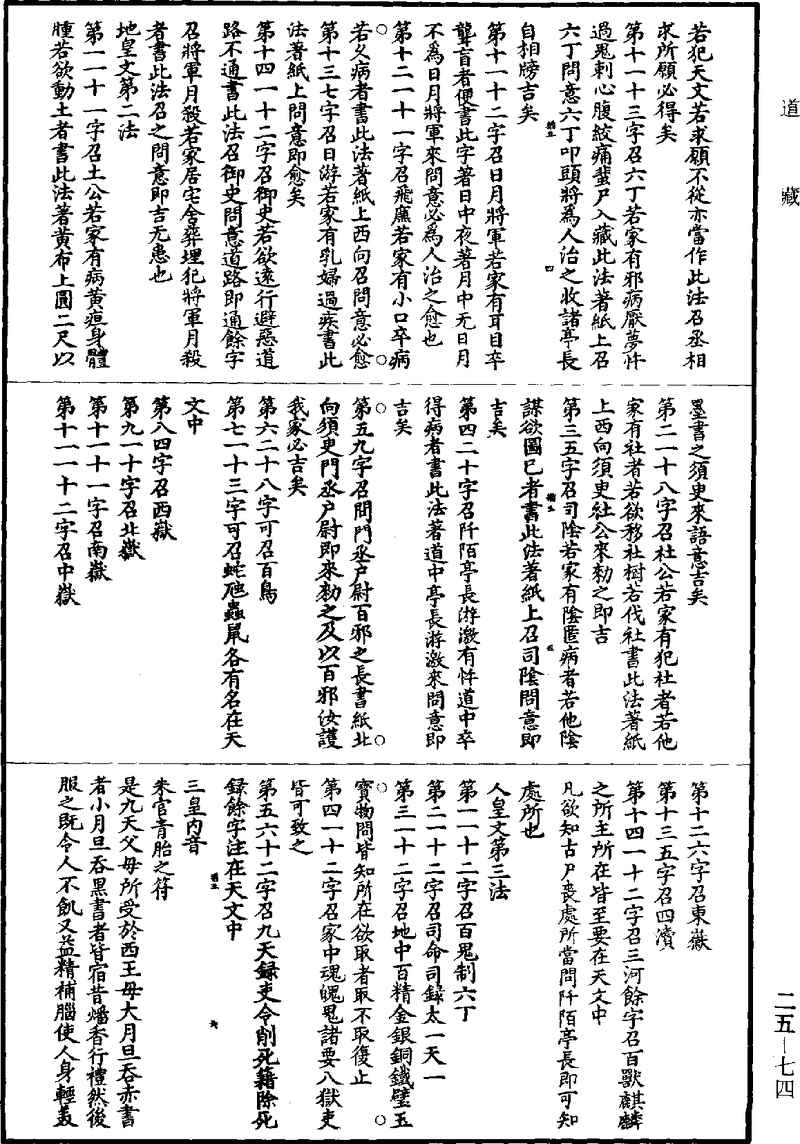 道藏
若犯天文若求願不從亦當作此法召丞相
求所願必得矣
第十一十三字召六丁若家有邪病厭夢忤
過鬼刺心腹絞痛蜚尸入藏此法著紙上召
六丁問意六丁叩頭將爲人治之收諸亭長
自相牓吉矣
第十一十二字召日月將軍若家有耳目卒
聾盲者便書此字著日中夜著月中无日月
不為日月將軍來問意必爲人治之愈也
第十二十一字召飛廉若家有小口卒病
若久病者書此法著紙上西向召問意必愈
第十三七字召日游若家有乳婦過疾書此
法著紙上問意即愈矣
第十四一十二字召御史若欲遠行避惡道
路不通書此法召御史問意道路即通餘字
召將軍月殺若家居宅舍弊埋犯將軍月殺
者書此法召之問意即吉无患也
地皇文第二法
第一一十一字召土公若家有病黃疸身體
腫若欲動土者書此法著黃布上圓二尺以
墨書之須臾來語意吉矣
第二一十八字召社公若家有犯社者若他
家有社者若欲移社樹若伐社書此法著紙
上西向須臾社公來勑之即吉
第三五字召司陰若家有陰匿病者若他陰
謀欲圖己者書此法著紙上召司陰問意即
吉矣
第四二十字召阡陌亭長游激有忤道中卒
得病者書此法著道中亭長游激來問意即
吉矣
第五九字召問門丞户尉百邪之長書紙北
向須臾門丞户尉即來勑之及以百邪汝護
我家必吉矣
第六二十八字可召百鳥
第七一十三字可召蛇虺蟲鼠各有名在天
文中
第八四字召西嶽
第九一十字召北嶽
第十一十一字召南嶽
第十一一十二字召中嶽
第十二六字召東嶽
第十三五字召四瀆
第十四一十二字召三河餘字召百獸麒麟
之所主所在皆至要在天文中
凡欲知古尸喪處所當問阡陌亭長即可知
處所也
人皇文第三法
第一一十二字召百鬼制六丁
第二一十二字召司命司錄太一天一
第三一十二字召地中百精金銀銅鐵璧玉
寶物問皆知所在欲取者取不取復止
第四一十二字召家中魂魄鬼諸要八獄吏
皆可致之
第五六十二字召九天錄吏令削死籍除死
録餘字注在天文中
三皇内音
朱官青胎之符
是九天父母所受於西王母大月旦吞赤書
者小月旦吞黑書者皆宿昔燔香行禮然後
服之既令人不飢又益精補腦使人身輕
二五—七四